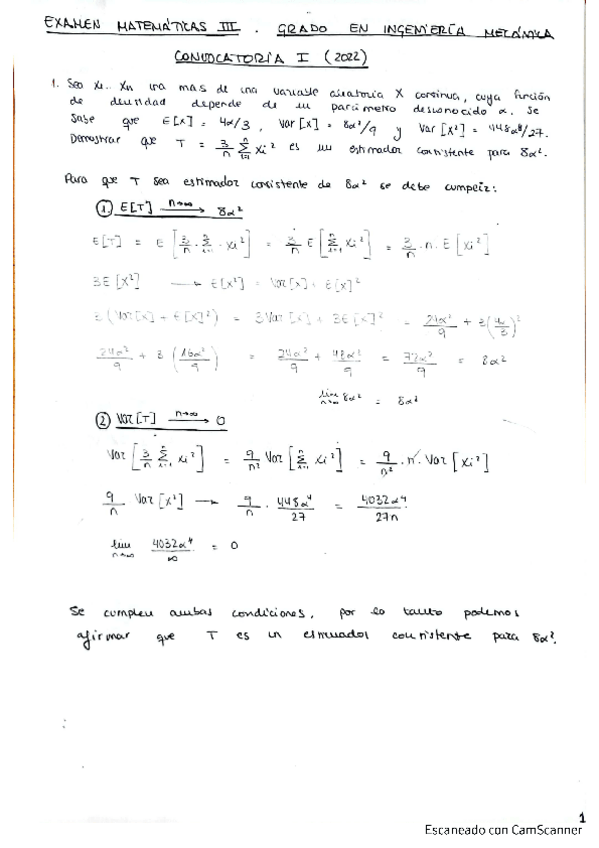 EXAMEN MATEMÁTICAS III. GRADO EN INGENIERÍA MECÁNICA
CONVOCATORIA I (2022)
1. Sea X₁.. Xn una mas de una variable aleatoria X continua, cuya función
de densidad depende de un parámetro desconocido α. Se
sabe que E[X] = 4α/3, Var[X] = 8α²/9 y Var[X²] = 448α⁴/27.
Demostrar que T = 3/n Σ xi² es un estimador consistente para 8α².
Para que T sea estimador consistente de 8α² se debe cumplir:
① E[T] n→∞ → 8α²
E[T] = E[3/n · Σ xi²] = 3/n E[Σ xi²] = 3/n · n · E[xi²]
3E[X²] → E[X²] = Var[X] + E[X]²
3(Var[X] + E[X]²) = 3Var[X] + 3E[X]² = 24α²/9 + 3(4α/3)²
24α²/9 + 3(16α²/9) = 24α²/9 + 48α²/9 = 72α²/9 = 8α²
lim n→∞ 8α² = 8α²
② Var[T] n→∞ → 0
Var[3/n Σ i=1 xi²] = 9/n² Var[Σ i=1 xi²] = 9/n² · n · Var[xi²]
9/n Var[X²] → 9/n · 448α⁴/27 = 4032α⁴/27n
lim n→∞ 4032α⁴/∞ = 0
Se cumplen ambas condiciones, por lo tanto podemos
afirmar que T es un estimador consistente para 8α².
1
Escaneado con CamScanner